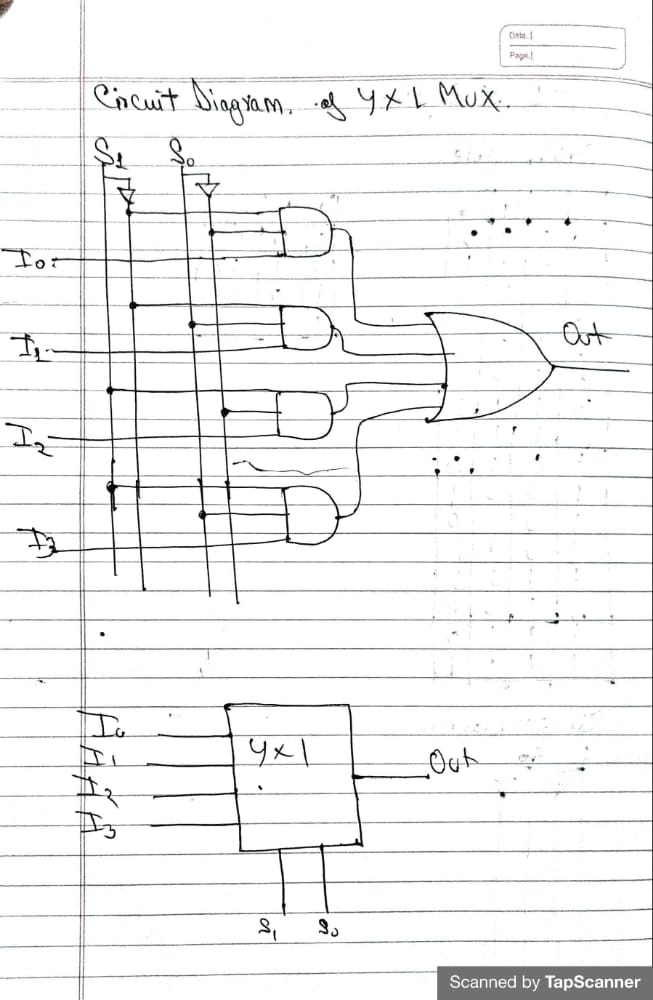 Date.
Page.
Circuit Diagram. of 4x1 MUX.
S1 S0
I0
I1
Out
I2
I3
I0
I1
4x1
Out
I2
I3
S1 S0
Scanned by TapScanner